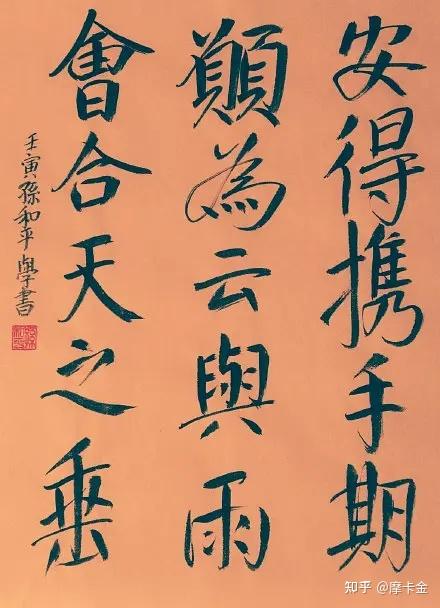 安得携手期
願為云與雨
會合天之垂
壬寅孫和平學書
知乎 @摩卡金